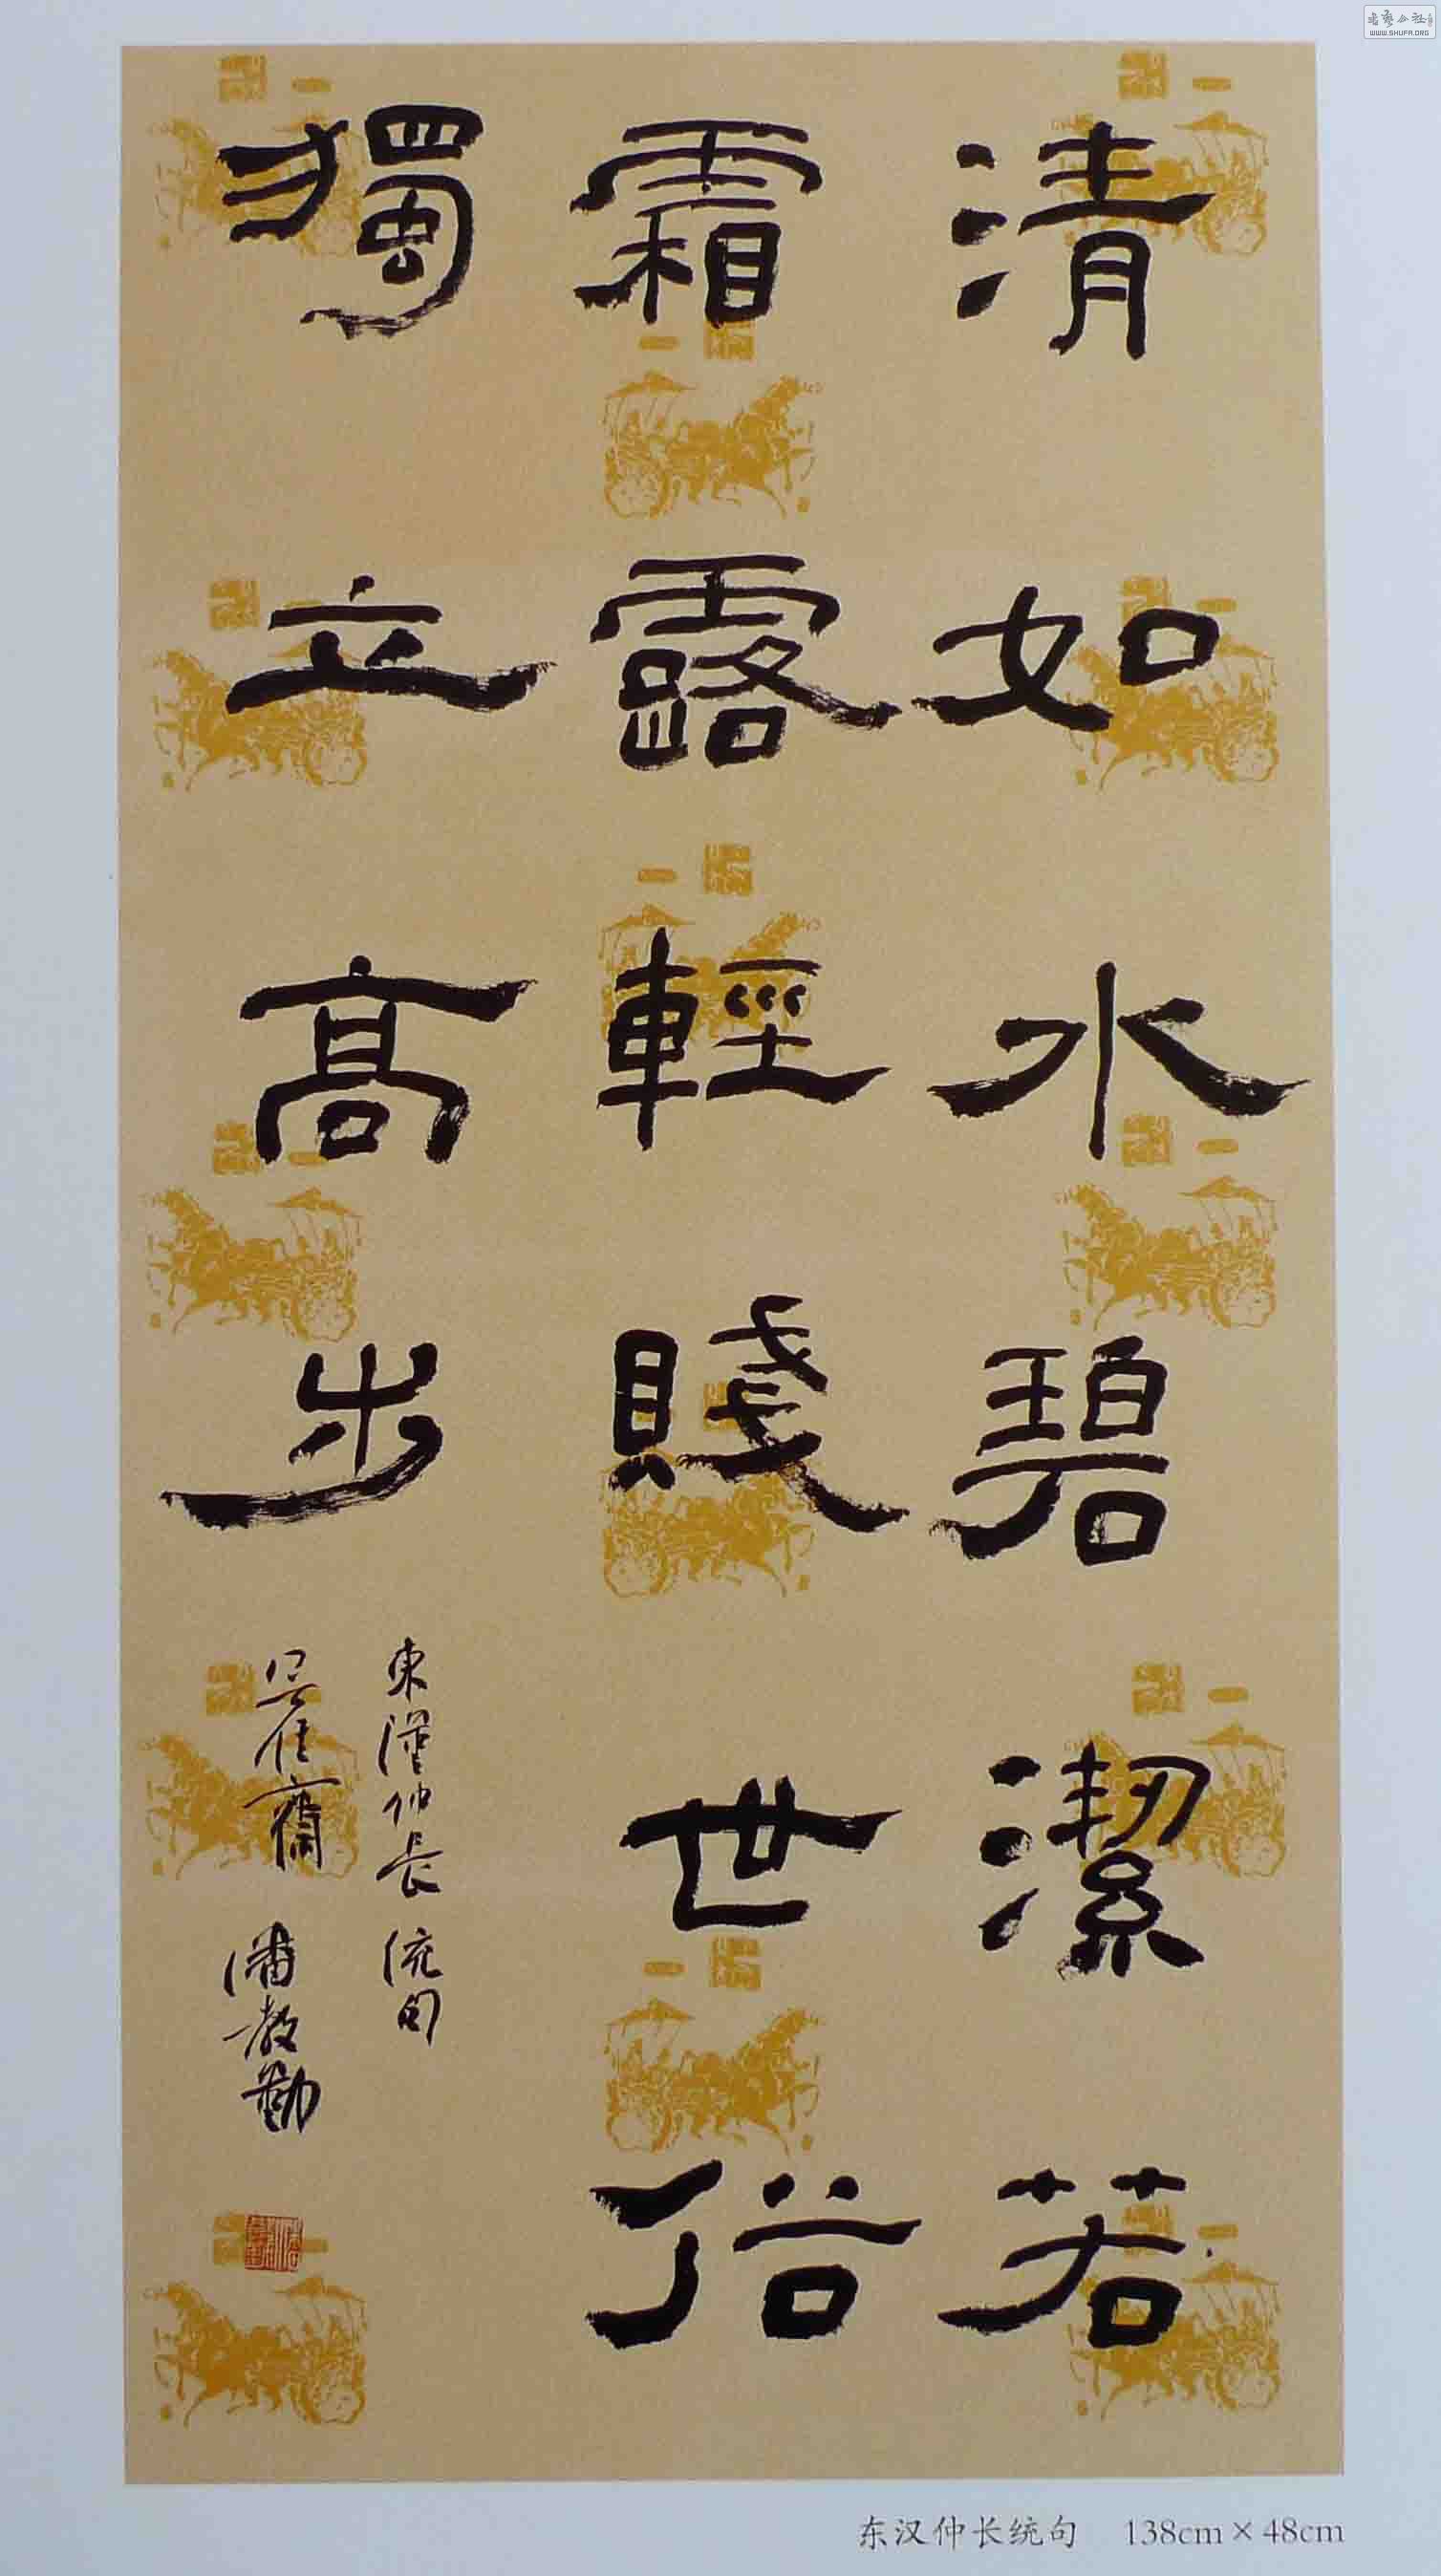 清如水碧潔若
霜露輕賤世俗
獨立高步
東漢仲長統句
潘教勤
东汉仲长统句 138cm×48cm
WWW.SHUFA.ORG